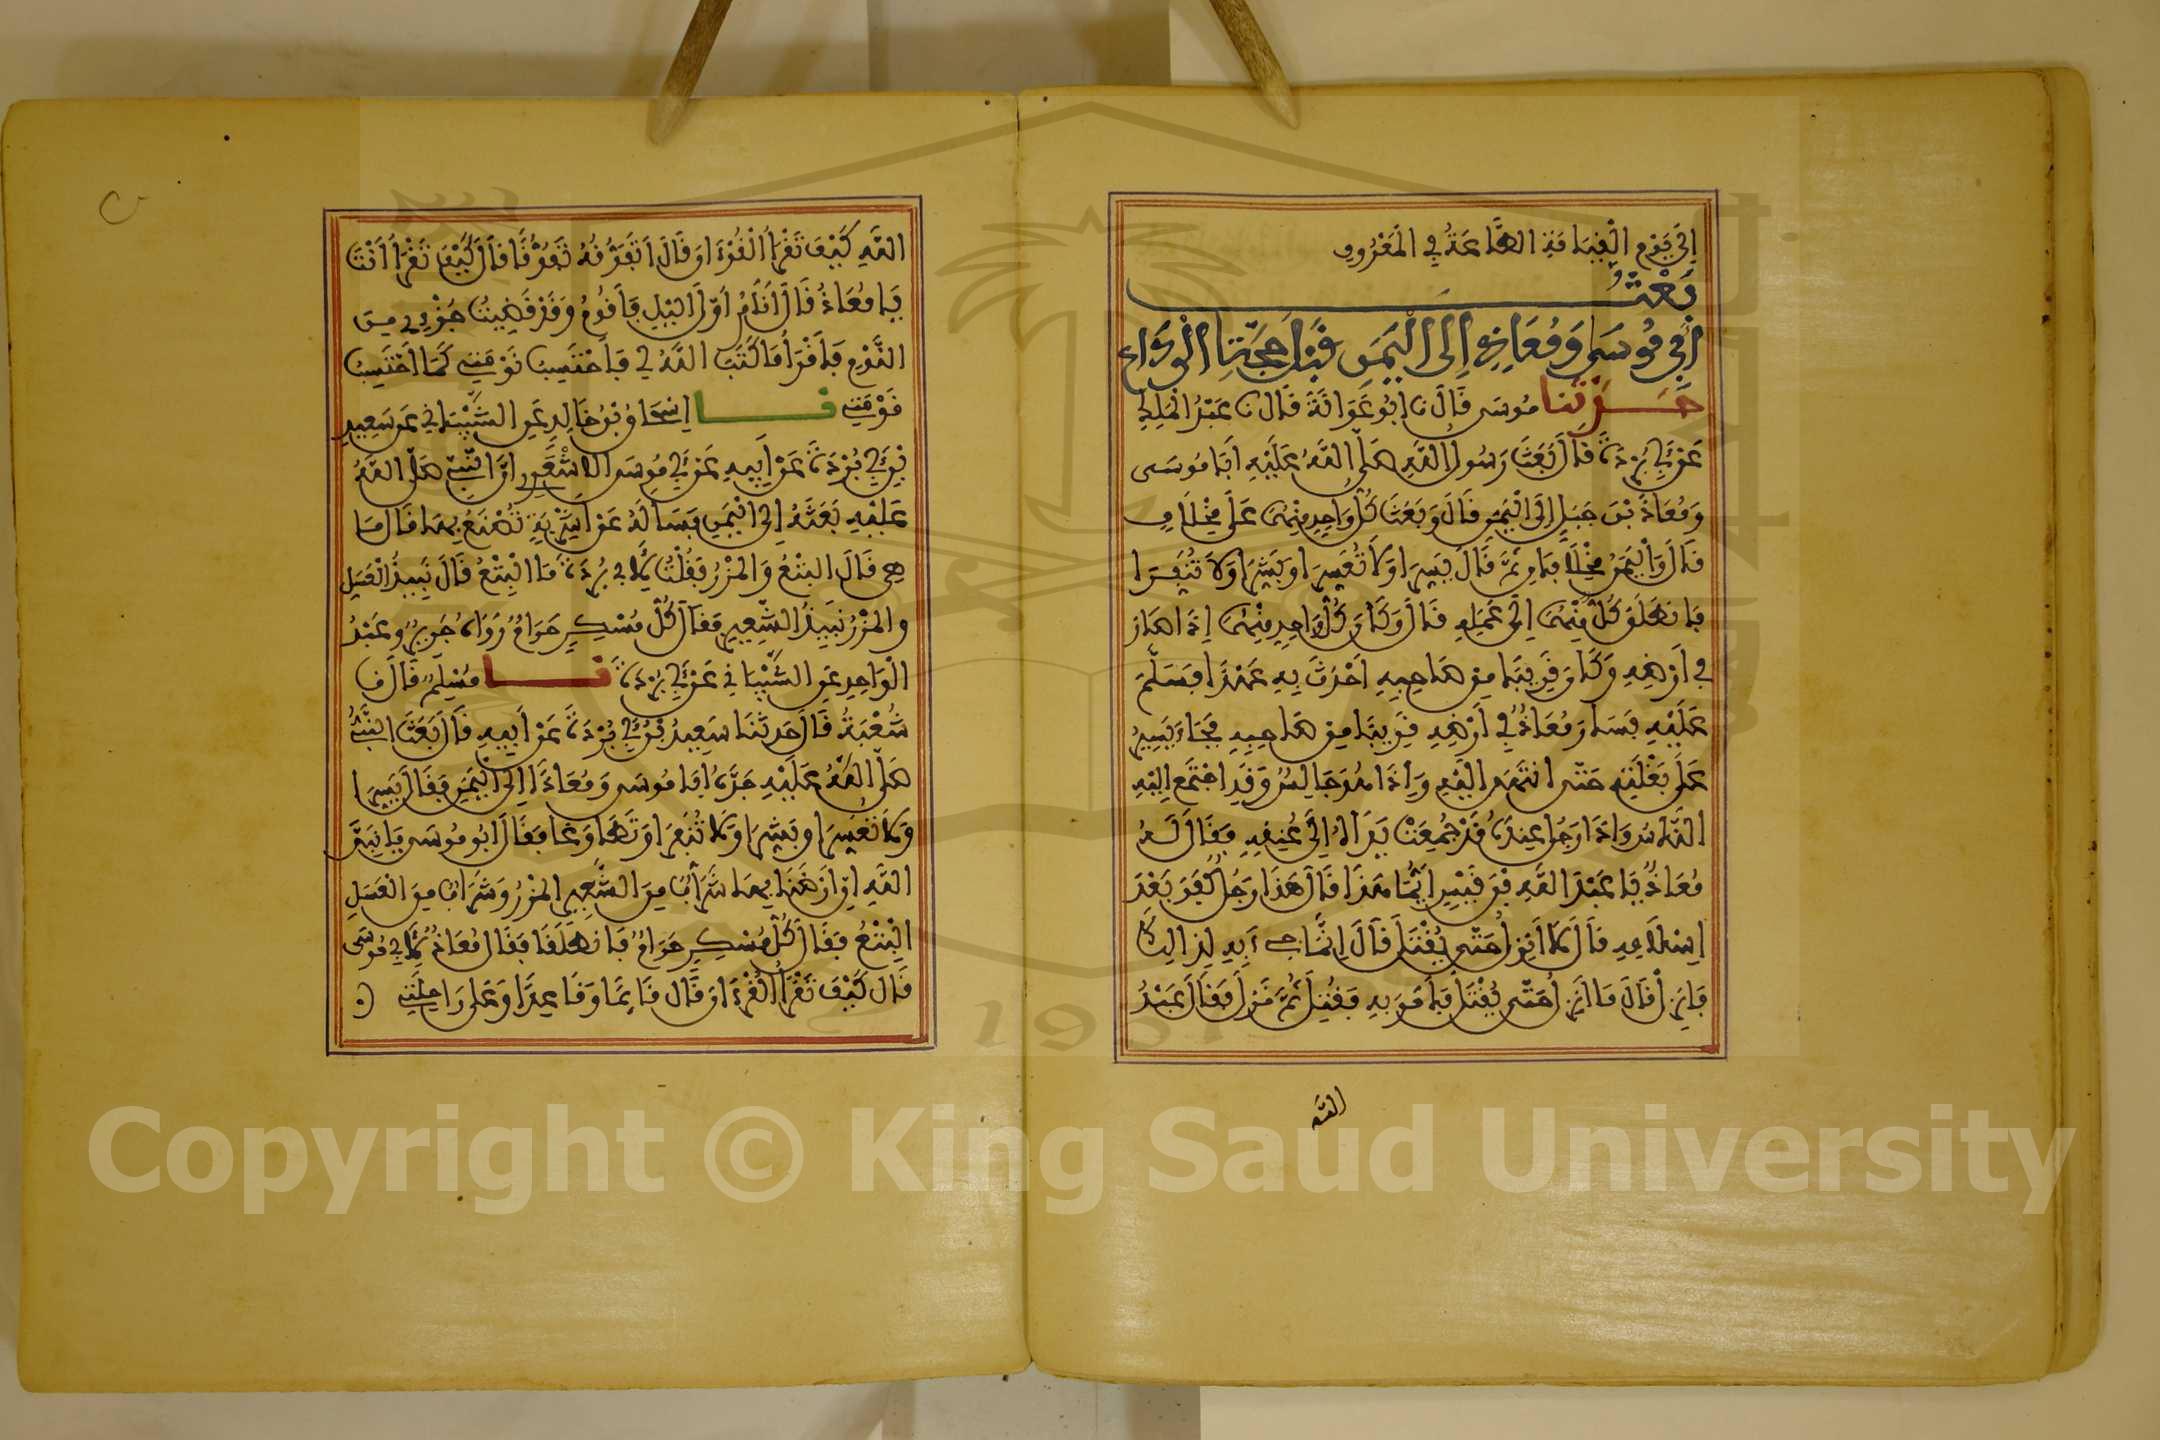 إِلَى يَوْمِ الْقِيَامَةِ الطَّاعَةُ فِي الْمَعْرُوفِ
بَعْثُ
أَبِي مُوسَى وَمُعَاذٍ إِلَى الْيَمَنِ قَبْلَ حَجَّةِ الْوَدَاعِ
حَدَّثَنَا مُوسَى قَالَ نَا أَبُو عَوَانَةَ قَالَ نَا عَبْدُ الْمَلِكِ
عَنْ أَبِي بُرْدَةَ قَالَ بَعَثَ رَسُولُ اللَّهِ صَلَّى اللَّهُ عَلَيْهِ أَبَا مُوسَى
وَمُعَاذَ بْنَ جَبَلٍ إِلَى الْيَمَنِ قَالَ وَبَعَثَ كُلَّ وَاحِدٍ مِنْهُمَا عَلَى مِخْلَافٍ
قَالَ وَالْيَمَنُ مِخْلَافَانِ ثُمَّ قَالَ يَسِّرَا وَلَا تُعَسِّرَا وَبَشِّرَا وَلَا تُنَفِّرَا
فَانْطَلَقَ كُلٌّ مِنْهُمَا إِلَى عَمَلِهِ قَالَ وَكَانَ كُلُّ وَاحِدٍ مِنْهُمَا إِذَا صَارَ
فِي أَرْضِهِ وَكَانَ قَرِيبًا مِنْ صَاحِبِهِ أَحْدَثَ بِهِ عَهْدًا فَسَلَّمَ
عَلَيْهِ فَسَارَ مُعَاذٌ فِي أَرْضِهِ قَرِيبًا مِنْ صَاحِبِهِ فَجَاءَ يَسِيرُ
عَلَى بَغْلَتِهِ حَتَّى انْتَهَى إِلَيْهِ وَإِذَا هُوَ جَالِسٌ وَقَدِ اجْتَمَعَ إِلَيْهِ
النَّاسُ وَإِذَا رَجُلٌ عِنْدَهُ قَدْ جُمِعَتْ يَدَاهُ إِلَى عُنُقِهِ فَقَالَ لَهُ
مُعَاذٌ يَا عَبْدَ اللَّهِ بْنَ قَيْسٍ أَيُّمَ هَذَا قَالَ هَذَا رَجُلٌ كَفَرَ بَعْدَ
إِسْلَامِهِ قَالَ لَا أَنْزِلُ حَتَّى يُقْتَلَ قَالَ إِنَّمَا جِيءَ بِهِ لِذَالِكَ
فَانْزِلْ قَالَ مَا أَنْزِلُ حَتَّى يُقْتَلَ فَأَمَرَ بِهِ فَقُتِلَ ثُمَّ نَزَلَ فَقَالَ يَا عَبْدَ
اللَّهِ
اللَّهِ كَيْفَ تَقْرَأُ الْقُرْءَانَ قَالَ أَتَفَوَّقُهُ تَفَوُّقًا قَالَ كَيْفَ تَقْرَأُ أَنْتَ
يَا مُعَاذُ قَالَ أَنَامُ أَوَّلَ اللَّيْلِ فَأَقُومُ وَقَدْ قَضَيْتُ جُزْءِي مِنَ
النَّوْمِ فَأَقْرَأُ مَا كَتَبَ اللَّهُ لِي فَأَحْتَسِبُ نَوْمَتِي كَمَا أَحْتَسِبُ
قَوْمَتِي نَا إِسْحَاقُ بْنُ خَالِدٍ عَنِ الشَّيْبَانِي عَنْ سَعِيدِ
بْنِ أَبِي بُرْدَةَ عَنْ أَبِيهِ عَنْ أَبِي مُوسَى الْأَشْعَرِي أَنَّ النَّبِيَّ صَلَّى اللَّهُ
عَلَيْهِ بَعَثَهُ إِلَى الْيَمَنِ فَسَأَلَهُ عَنْ أَشْرِبَةٍ تُصْنَعُ بِهَا قَالَ مَا
هِيَ قَالَ الْبِتْعُ وَالْمِزْرُ فَقُلْتُ لِأَبِي بُرْدَةَ مَا الْبِتْعُ قَالَ نَبِيذُ الْعَسَلِ
وَالْمِزْرُ نَبِيذُ الشَّعِيرِ فَقَالَ كُلُّ مُسْكِرٍ حَرَامٌ رَوَاهُ جَرِيرٌ وَعَبْدُ
الْوَاحِدِ عَنِ الشَّيْبَانِي عَنْ أَبِي بُرْدَةَ نَا مُسْلِمٌ قَالَ نَا
شُعْبَةُ قَالَ حَدَّثَنَا سَعِيدُ بْنُ أَبِي بُرْدَةَ عَنْ أَبِيهِ قَالَ بَعَثَ النَّبِيُّ
صَلَّى اللَّهُ عَلَيْهِ جَدَّهُ أَبَا مُوسَى وَمُعَاذًا إِلَى الْيَمَنِ فَقَالَ يَسِّرَا
وَلَا تُعَسِّرَا وَبَشِّرَا وَلَا تُنَفِّرَا وَتَطَاوَعَا فَقَالَ أَبُو مُوسَى يَا نَبِيَّ
اللَّهِ إِنَّ أَرْضَنَا بِهَا شَرَابٌ مِنَ الشَّعِيرِ الْمِزْرُ وَشَرَابٌ مِنَ الْعَسَلِ
الْبِتْعُ فَقَالَ كُلُّ مُسْكِرٍ حَرَامٌ فَانْطَلَقَا فَقَالَ مُعَاذٌ لِأَبِي مُوسَى
قَالَ كَيْفَ تَقْرَأُ الْقُرْءَانَ قَالَ قَائِمًا وَقَاعِدًا وَعَلَى رَاحِلَتِي
Copyright © King Saud University
1957